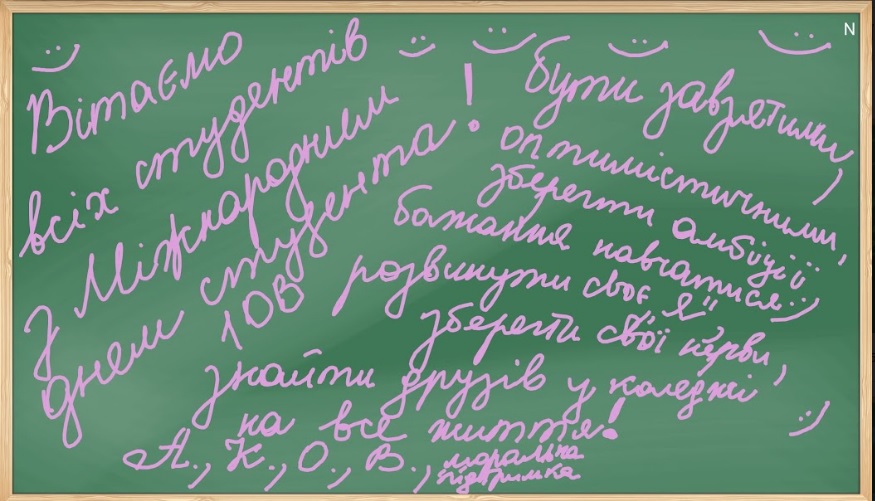 Вітаємо
всіх студентів
з Міжнародним
днем студента!
10В
бути завзятими,
оптимістичними,
зберегти амбіції і
бажання навчатися
розвинути своє "Я"
зберегти свої нерви,
знайти друзів у коледжі
на все життя!
А., К., О., В., моральна
підтримка
N